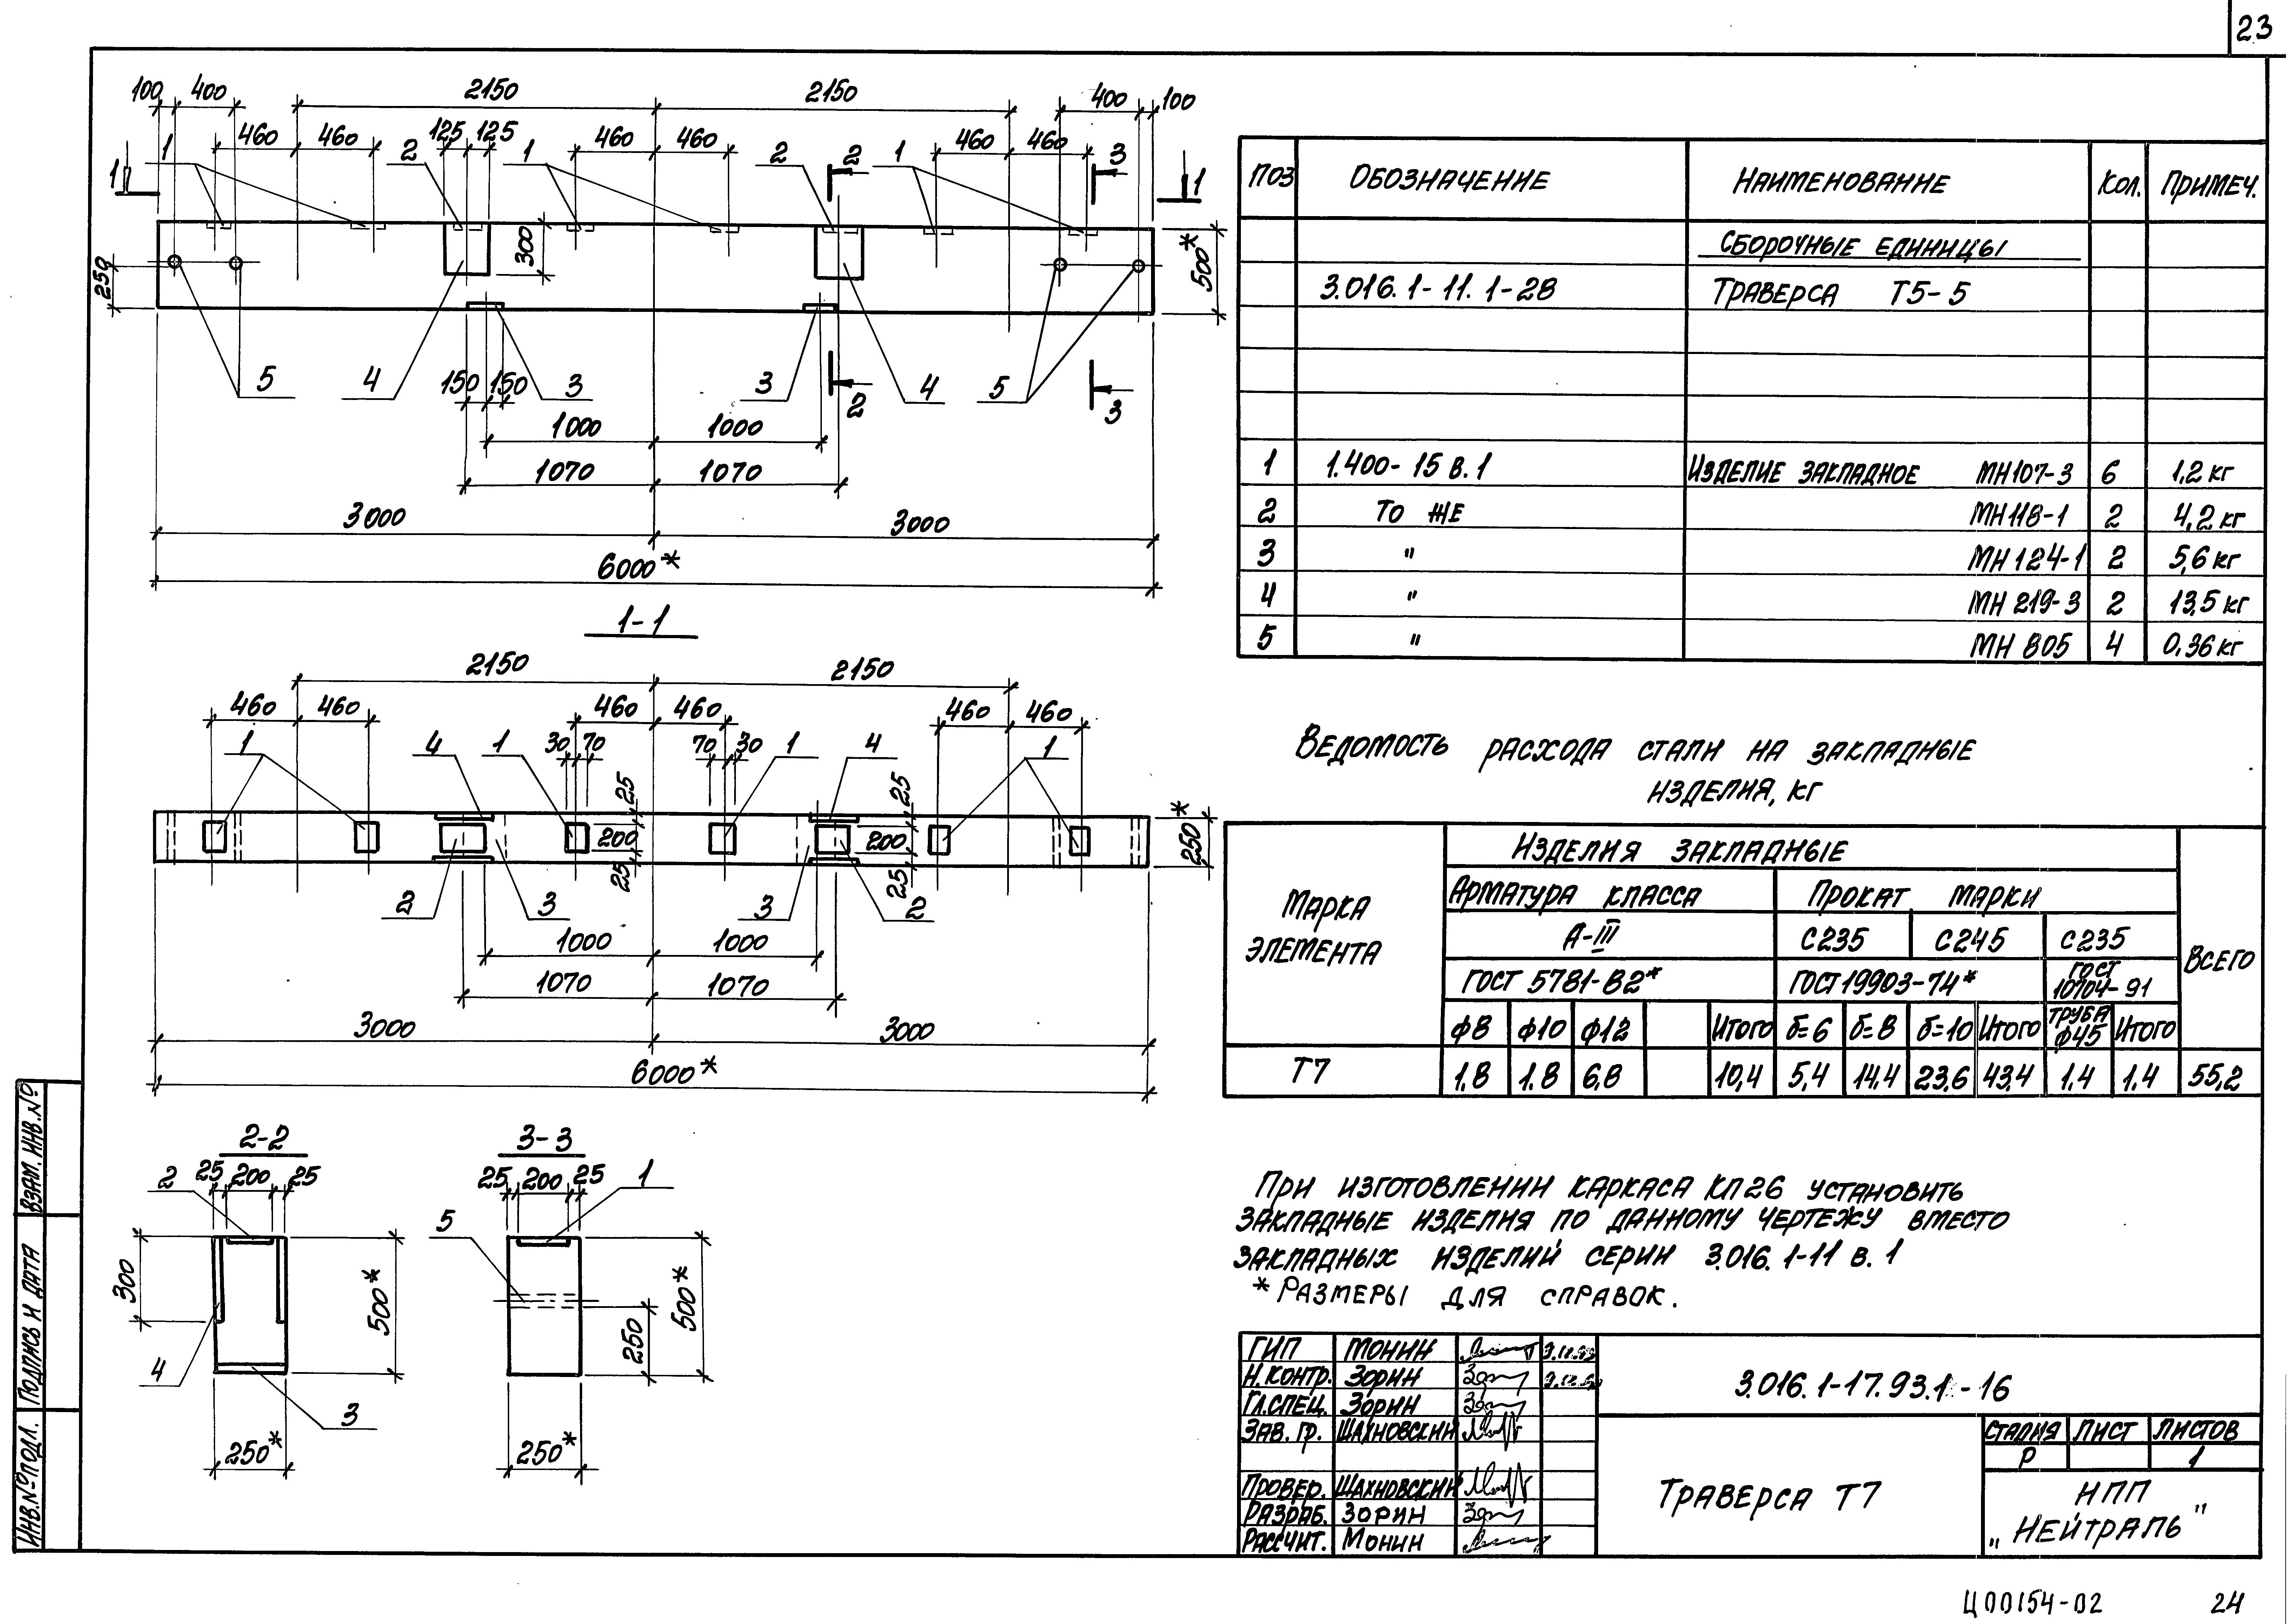 23
100 400 2150 2150 400 100
460 460 125 125 460 460 460 460
1 2 1 2 2 1 3
1 1
250 300 500*
5 4 150 150 3 3 2 4 5 3
1000 1000
1070 1070
3000 3000
6000*
1-1
2150 2150
460 460 460 460 460 460
1 4 1 30 70 70 30 1 4 1
25 200 25 25 200 25 250*
2 3 3 2
1000 1000
1070 1070
3000 3000
6000*
2-2
2 25 200 25
300 500*
4
3
250*
3-3
25 200 25 1
5
250 500*
250*
ПОЗ ОБОЗНАЧЕНИЕ НАИМЕНОВАНИЕ КОЛ. ПРИМЕЧ.
СБОРОЧНЫЕ ЕДИНИЦЫ
3.016.1-11.1-28 ТРАВЕРСА Т5-5
1 1.400-15 В.1 ИЗДЕЛИЕ ЗАКЛАДНОЕ МН107-3 6 1,2 кг
2 ТО ЖЕ МН118-1 2 4,2 кг
3 " МН 124-1 2 5,6 кг
4 " МН 219-3 2 13,5 кг
5 " МН 805 4 0,36 кг
ВЕДОМОСТЬ РАСХОДА СТАЛИ НА ЗАКЛАДНЫЕ
ИЗДЕЛИЯ, КГ
МАРКА ЭЛЕМЕНТА
ИЗДЕЛИЯ ЗАКЛАДНЫЕ
АРМАТУРА КЛАССА ПРОКАТ МАРКИ
А-III С235 С245 С235
ВСЕГО
ГОСТ 5781-82* ГОСТ 19903-74* ГОСТ 10704-91
ф8 ф10 ф12 ИТОГО б=6 б=8 б=10 ИТОГО ТРУБА ф45 ИТОГО
Т7 1,8 1.8 6,8 10,4 5,4 14,4 23,6 43,4 1.4 1.4 55,2
ПРИ ИЗГОТОВЛЕНИИ КАРКАСА КП26 УСТАНОВИТЬ
ЗАКЛАДНЫЕ ИЗДЕЛИЯ ПО ДАННОМУ ЧЕРТЕЖУ ВМЕСТО
ЗАКЛАДНЫХ ИЗДЕЛИЙ СЕРИИ 3.016.1-11 В.1
* РАЗМЕРЫ ДЛЯ СПРАВОК.
ГИП МОНИН
Н.КОНТР. ЗОРИН
ГЛ.СПЕЦ. ЗОРИН
ЗАВ. ГР. ШАХНОВСКИЙ
ПРОВЕР. ШАХНОВСКИЙ
РАЗРАБ. ЗОРИН
РАССЧИТ. МОНИН
3.016.1-17.93.1-16
ТРАВЕРСА Т7
СТАДИЯ ЛИСТ ЛИСТОВ
Р 1
НПП
„НЕЙТРАЛЬ"
ВЗАМ. ИНВ.№
ПОДПИСЬ И ДАТА
ИНВ.№ ПОДЛ.
Ц00154-02 24